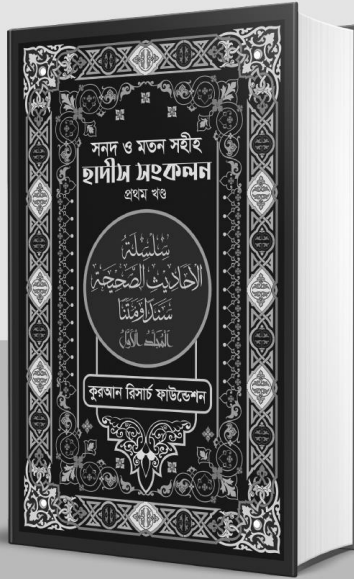 সনদ ও মতন সহীহ
হাদীস সংকলন
প্রথম খণ্ড
سِلْسِلَةُ
الأَحَادِيْثِ الصَّحِيْحَةِ
سَنَدًا وَمَتَنًا
المُجَلَّدُ الأَوَّلُ
কুরআন রিসার্চ ফাউন্ডেশন